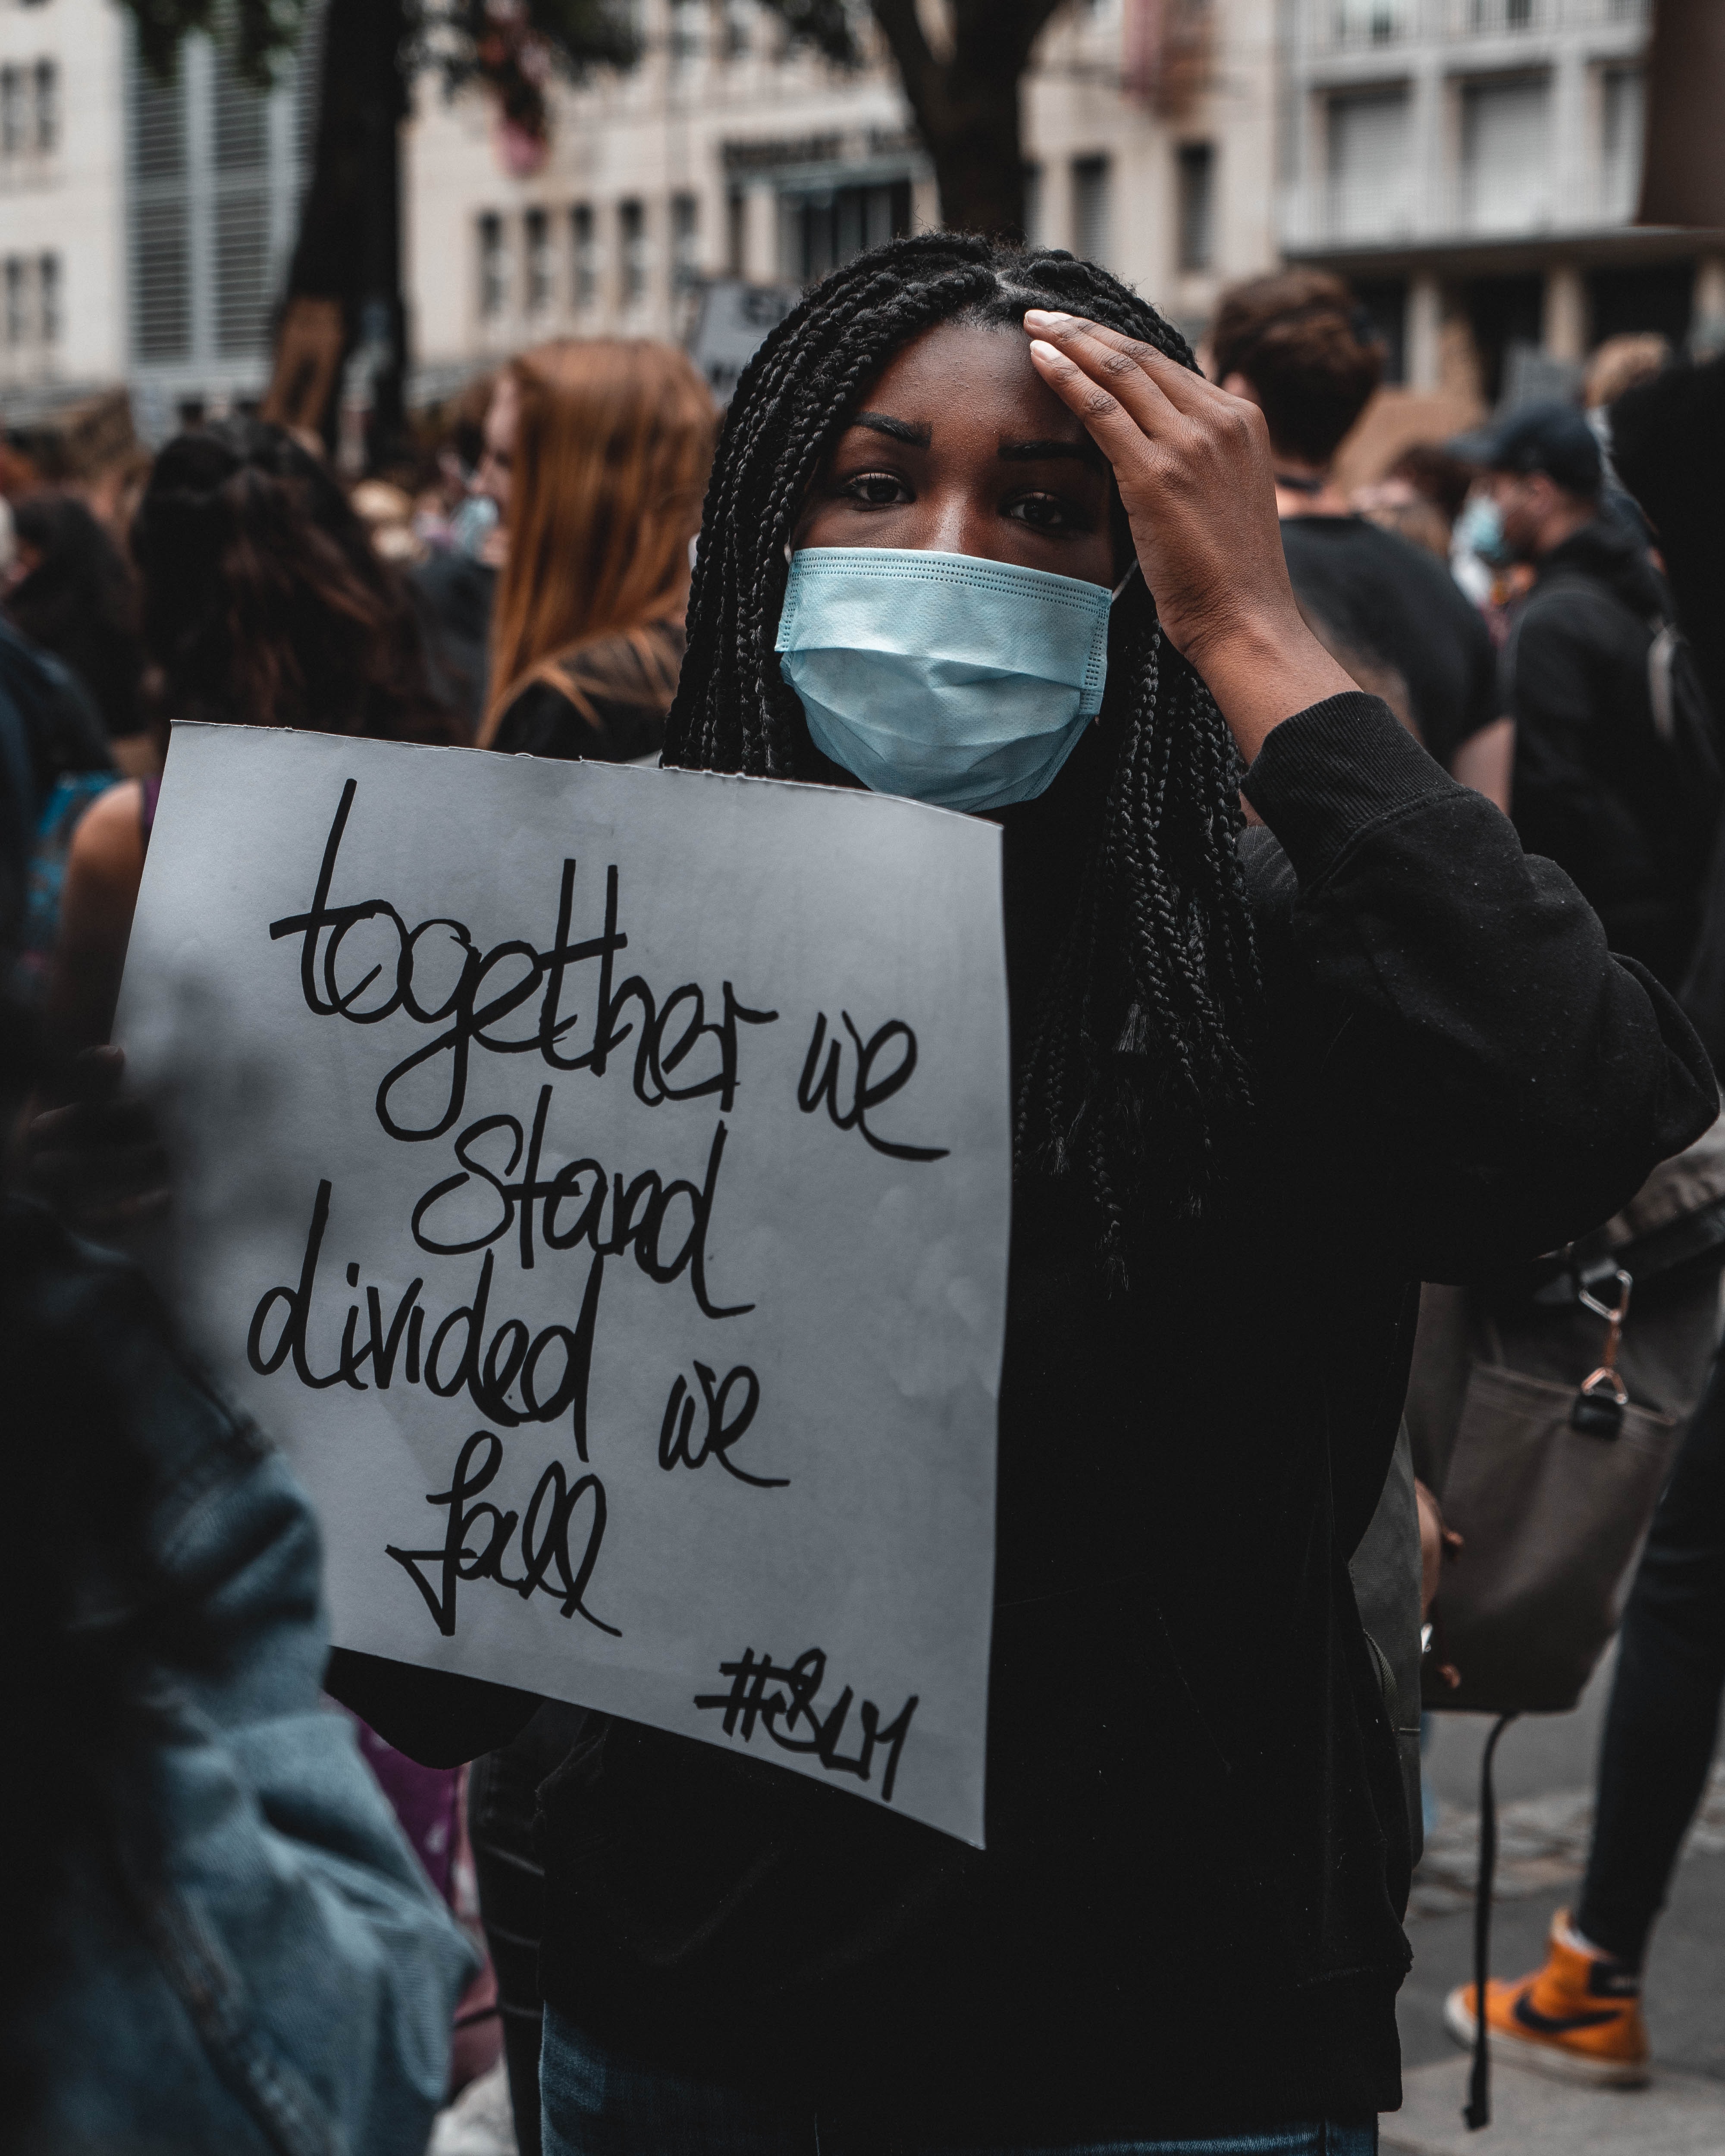 together we
stand
divided we
fall
#BLM